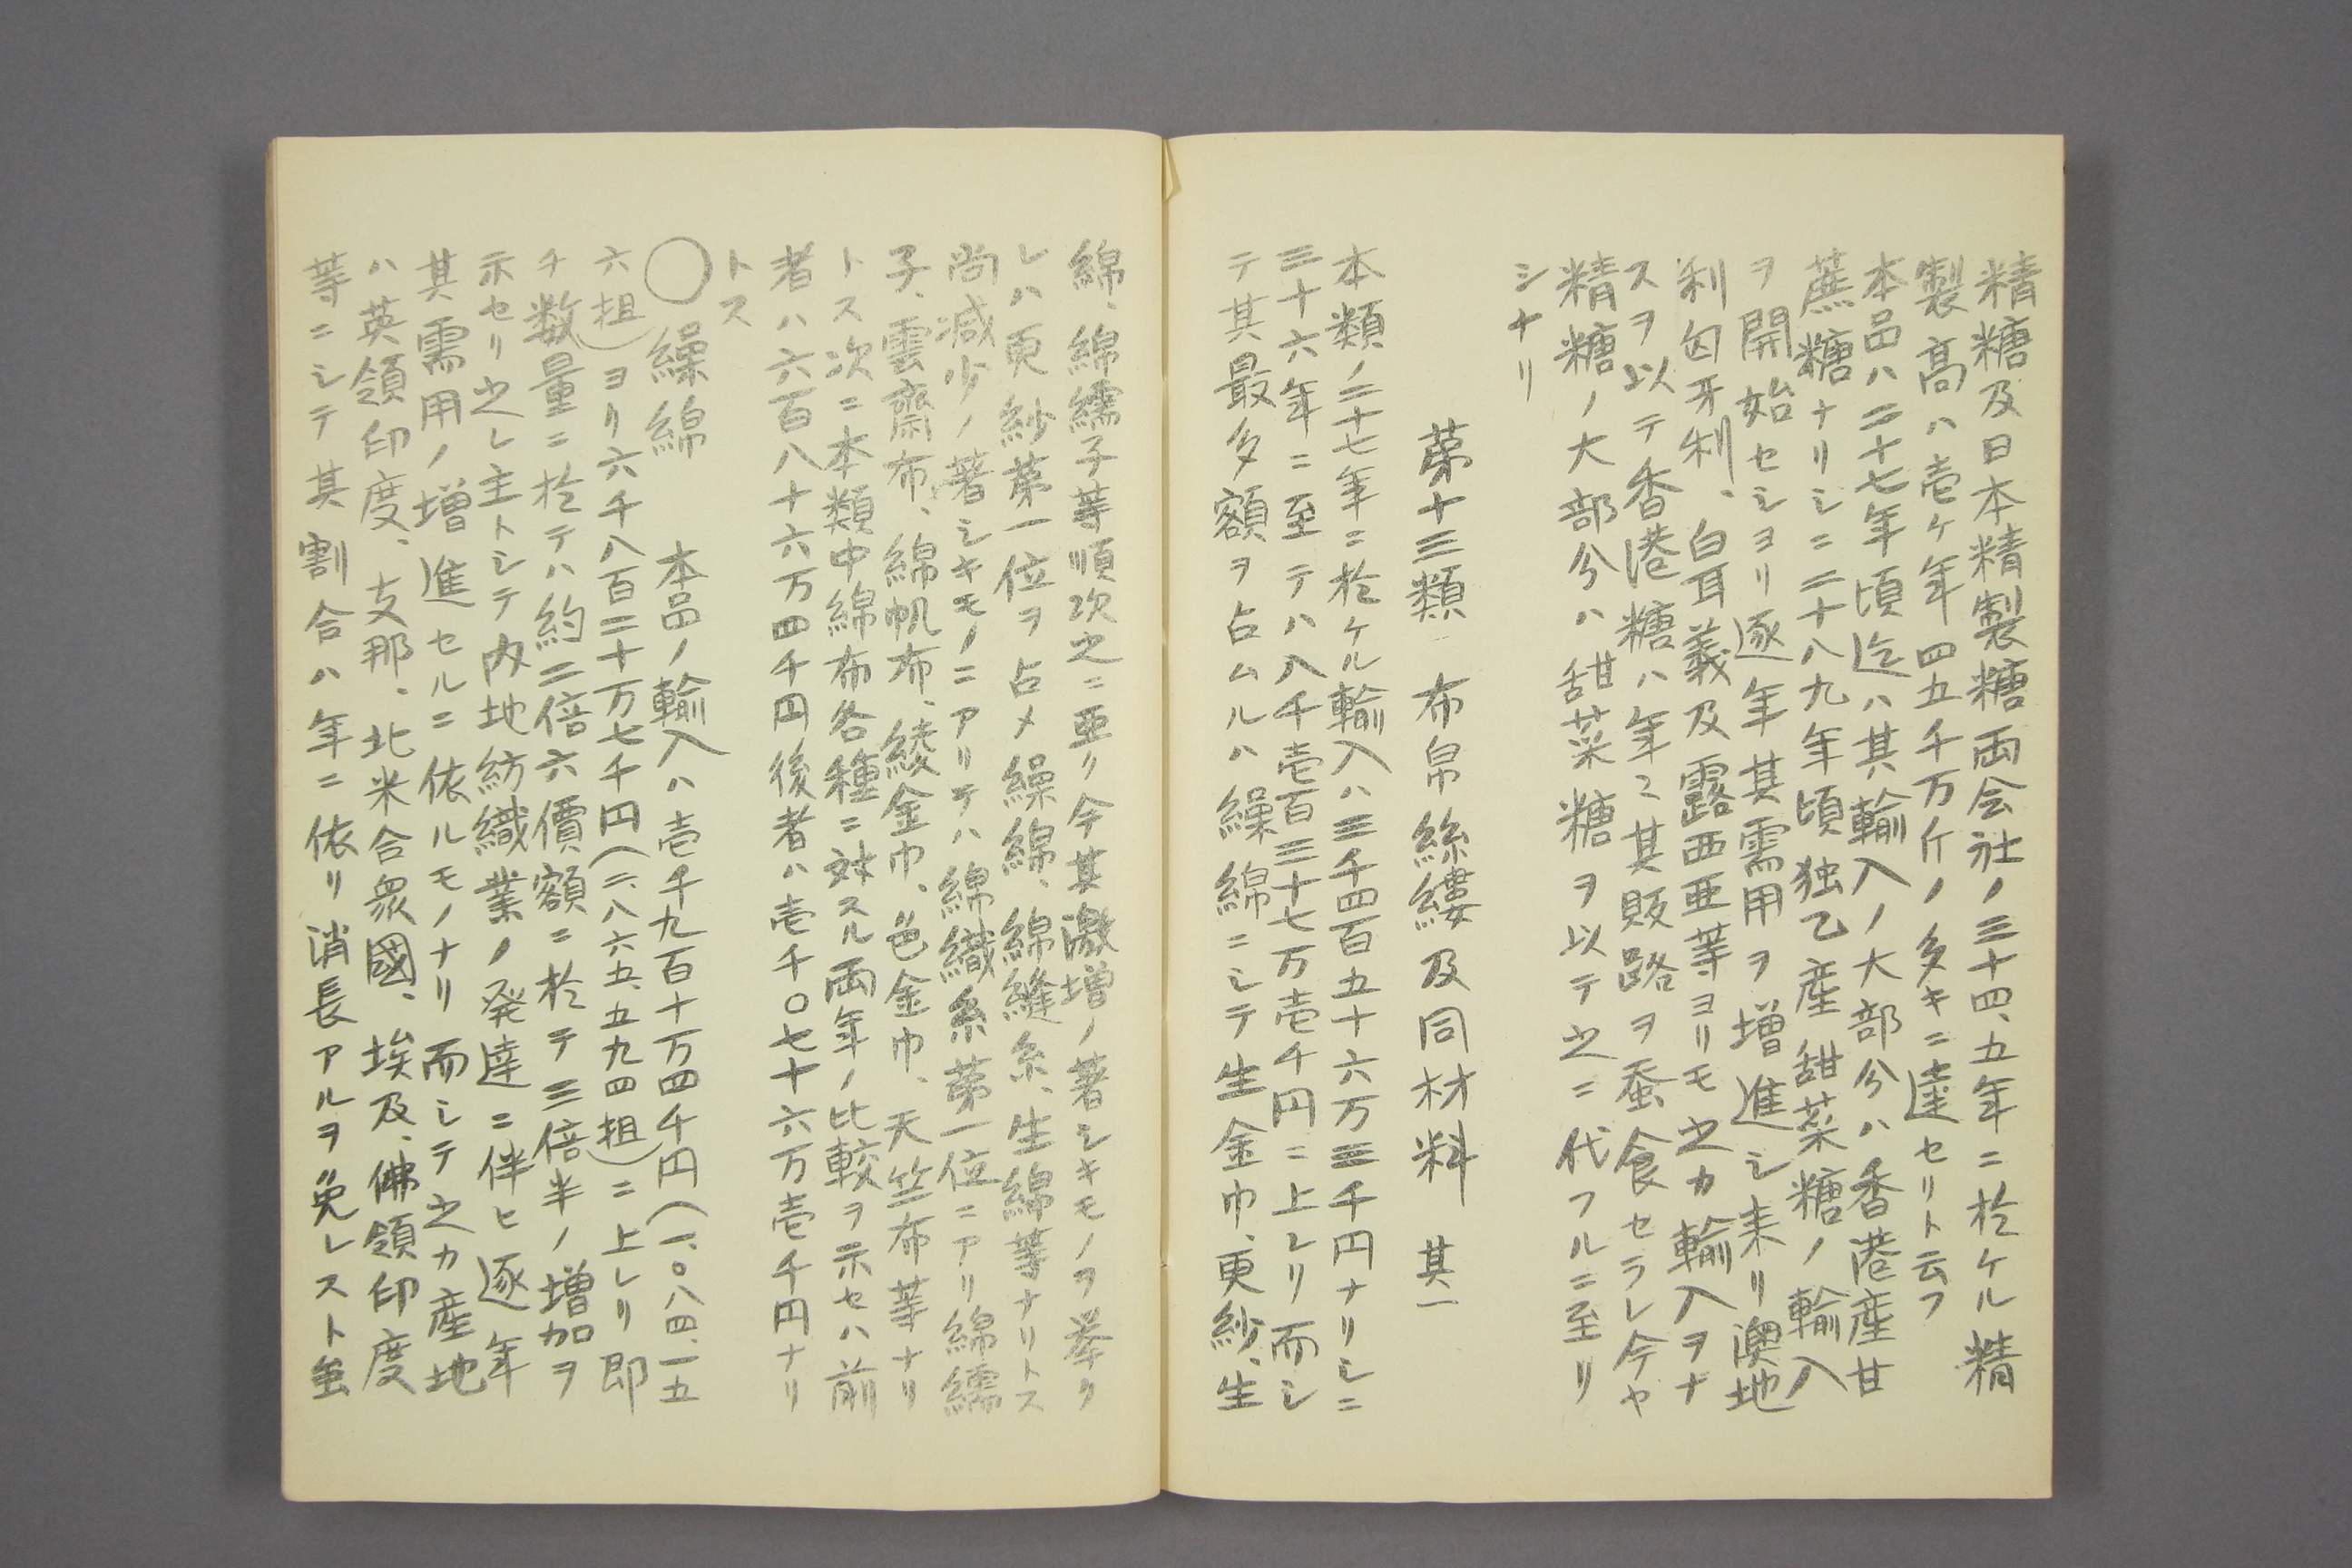 精糖及日本精製糖両会社ノ三十四、五年ニ於ケル精
製高ハ壱ケ年四五千万斤ノ多キニ達セリト云フ
本品ハ二十七年頃迄ハ其輸入ノ大部分ハ香港産甘
蔗糖ナリシニ二十八九年頃独乙産甜菜糖ノ輸入
ヲ開始セシヨリ逐年其需用ヲ増進シ来リ澳地
利匈牙利、白耳義及露西亜等ヨリモ之カ輸入ヲナ
スヲ以テ香港糖ハ年々其販路ヲ蚕食セラレ今ヤ
精糖ノ大部分ハ甜菜糖ヲ以テ之ニ代フルニ至リ
シナリ
第十三類 布帛絲縷及同材料 其一
本類ノ二十七年ニ於ケル輸入ハ三千四百五十六万三千円ナリシニ
三十六年ニ至テハ八千壱百三十七万壱千円ニ上レリ而シ
テ其最多額ヲ占ムルハ繰綿ニシテ生金巾、更紗、生
綿、綿繻子等順次之ニ亜ク今其激増ノ著シキモノヲ挙ク
レハ更紗第一位ヲ占メ繰綿、綿縫糸、生綿等ナリトス
尚減少ノ著シキモノニアリテハ綿織糸第一位ニアリ綿繻
子、雲齋布、綿帆布、綾金巾、色金巾、天竺布等ナリ
トス次ニ本類中綿布各種ニ対スル両年ノ比較ヲ示セハ前
者ハ六百八十六万四千円後者ハ壱千〇七十六万壱千円ナリ
トス
〇繰綿 本品ノ輸入ハ壱千九百十万四千円(一、〇八四、一五
六担)ヨリ六千八百二十万七千円(二、八六五、五九四担)ニ上レリ即
チ数量ニ於テハ約二倍六價額ニ於テ三倍半ノ増加ヲ
示セリ之レ主トシテ内地紡織業ノ発達ニ伴ヒ逐年
其需用ノ増進セルニ依ルモノナリ而シテ之カ産地
ハ英領印度、支那、北米合衆國、埃及、佛領印度
等ニシテ其割合ハ年ニ依リ消長アルヲ免レスト虽